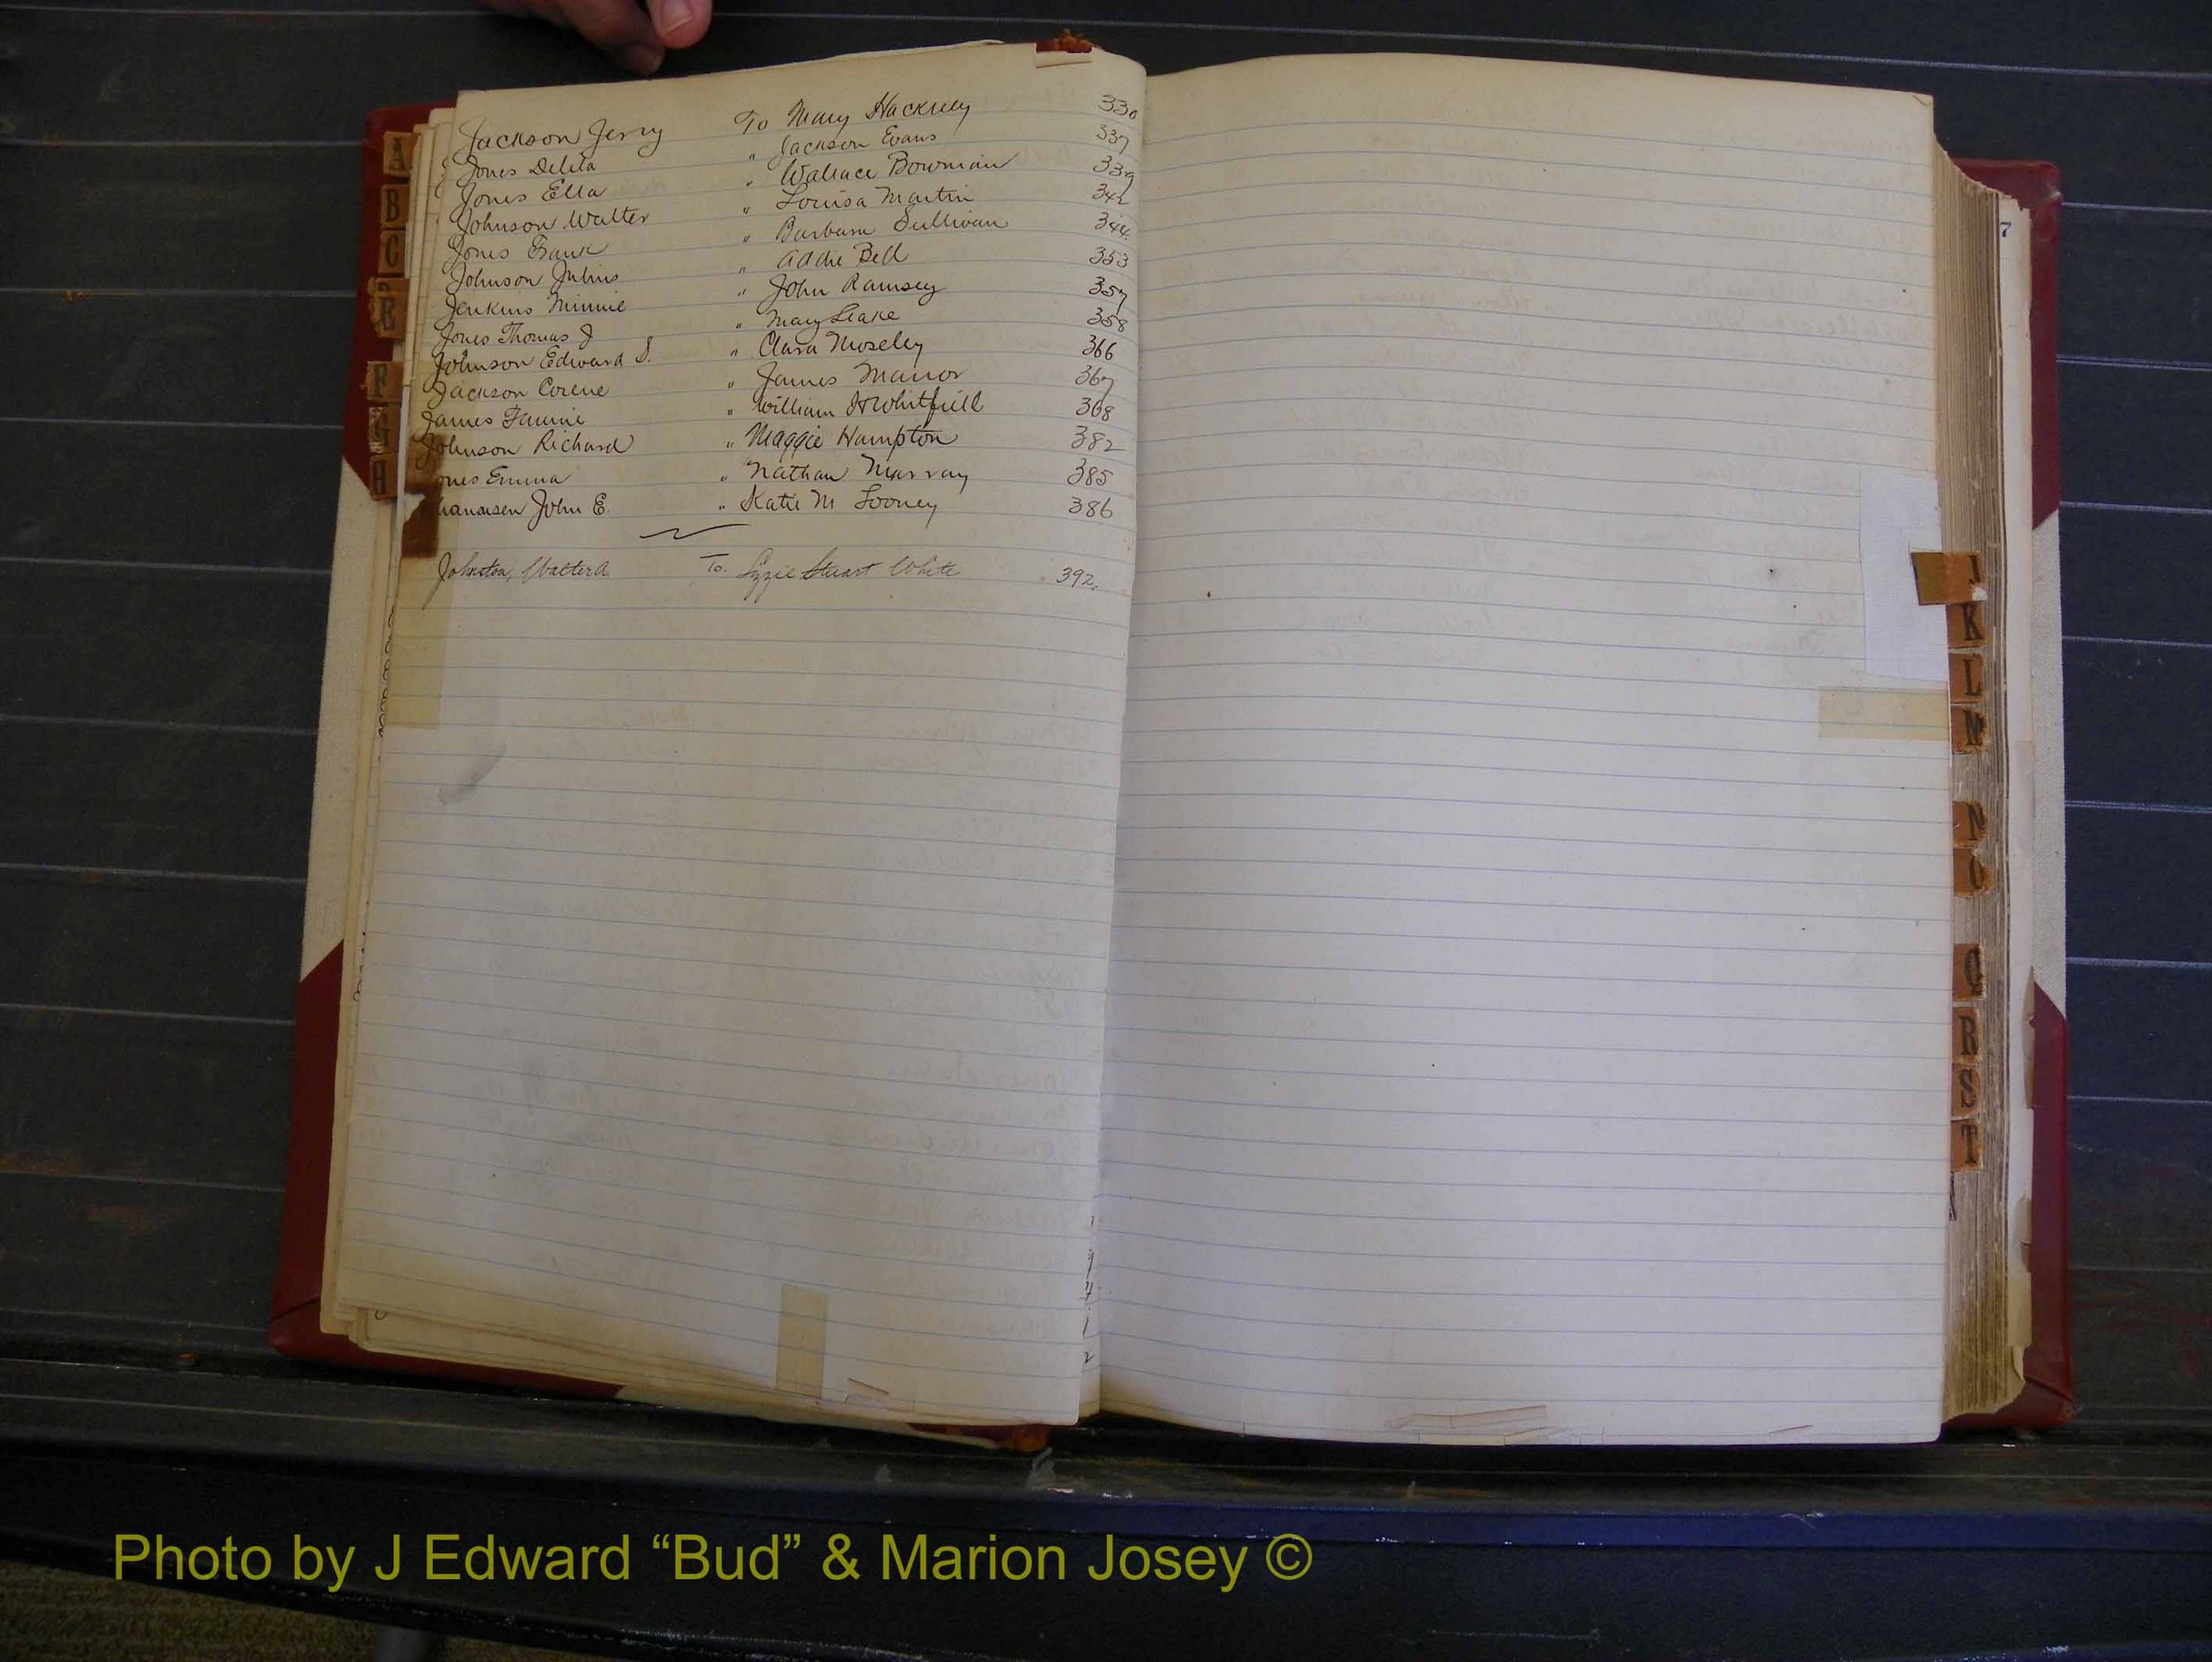 Jackson Jerry To Mary Hackney 330
Jones Delila " Jackson Evans 337
Jones Ella " Wallace Bowman 339
Johnson Walter " Louisa Martin 342
Jones Frank " Barbara Sullivan 344
Johnson Julius " Addie Bell 353
Jenkins Minnie " John Ramsey 357
Jones Thomas J " Mary Leake 358
Johnson Edward S. " Clara Moseley 366
Jackson Corene " James Mannor 367
James Fannie " William H Whitfield 368
Johnson Richard " Maggie Hampton 382
ones Emma " Nathan Murray 385
John E. " Katie M Looney 386
Johnston, Walter A. To. Lizzie Stuart White 392.
A
B
C
E
F
G
H
7
K
L
M
N
O
Q
R
S
T
Photo by J Edward “Bud” & Marion Josey ©